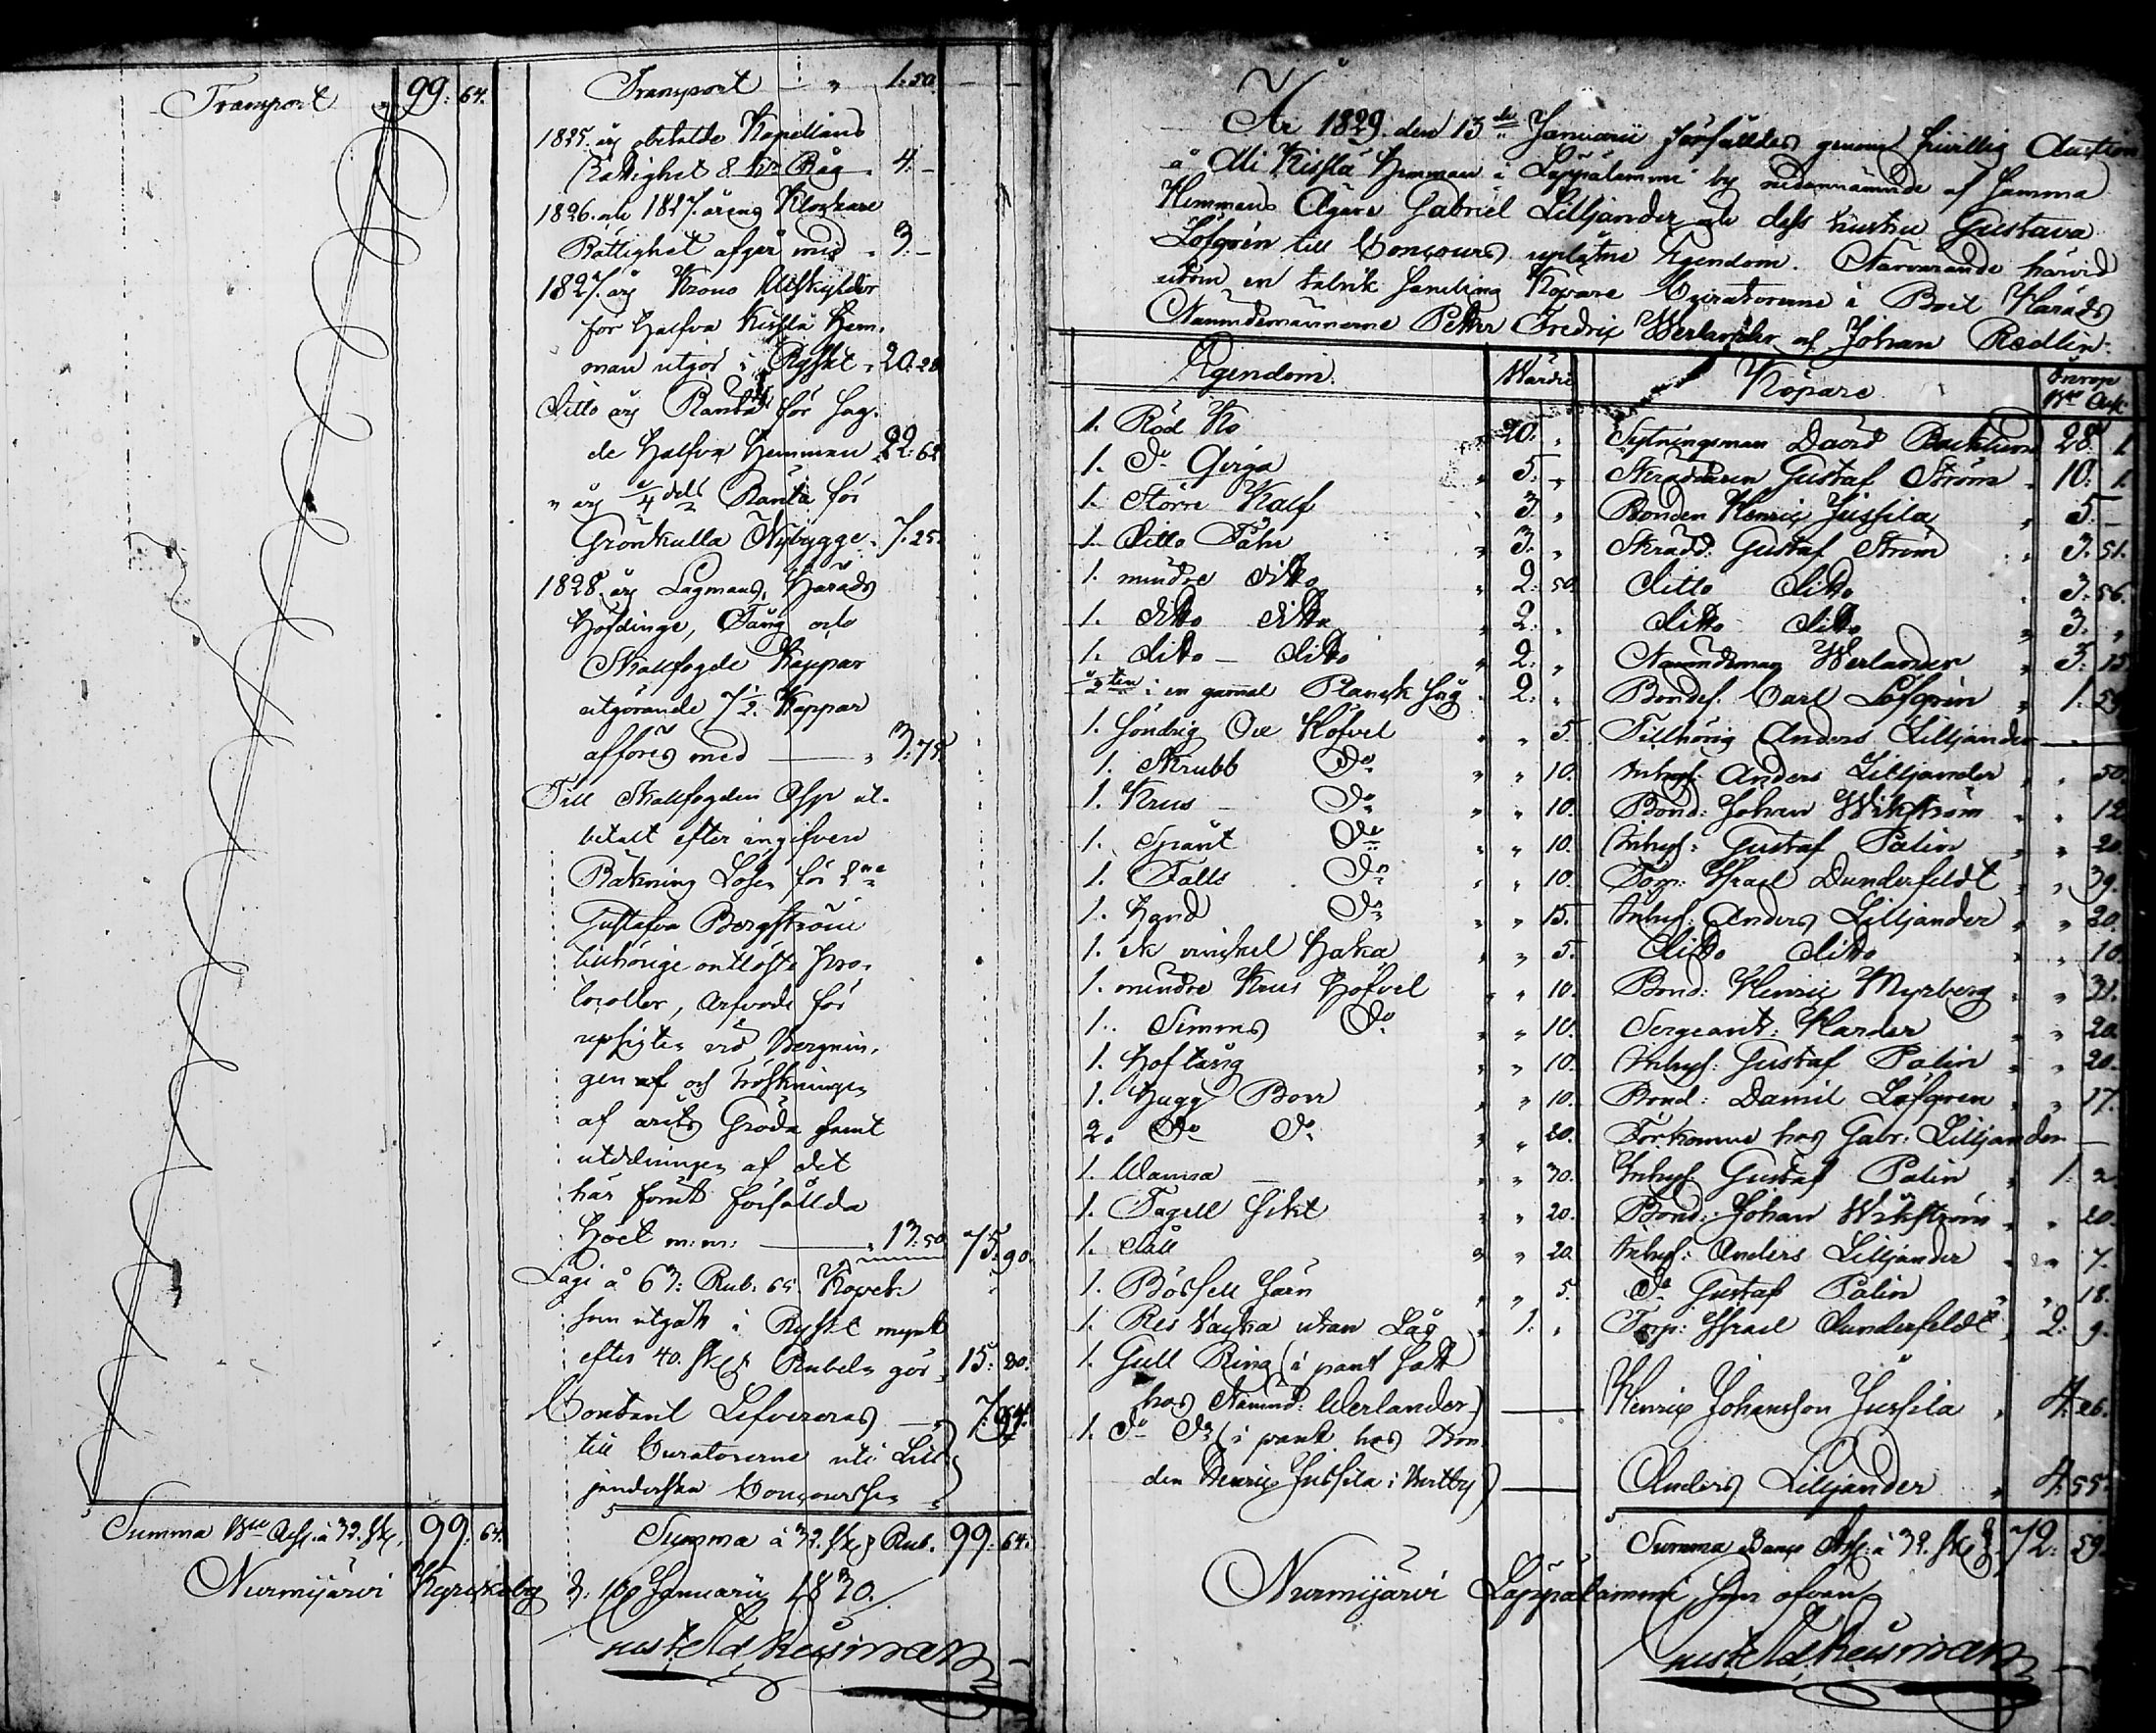 Transport „ 99: 64.
Summa Bco Ass. à 32. sk. 99: 64.
Nurmijärvi Kyrckoby d: 100 Januarii 1830.
Transport — „ 1:50 — —
1825. års obetalde Kapellans
Rättighet 8 kr Råg „ 4: –
1826. och 1827. åreng Klockare
Rättighet afgår med „ 3: –
1827. års Krono Utskylder
för Halfva Kissla Hem-
man utgör i Ryskt „ 20: 28
Ditto års Ranta för sag-
de Halfva Hemman 22: 62
„ års 1/4 dels Ranta för
Grönkulla Nybygge „ 7. 25.
1828. års Lagmans, Härads
Höfdinge, Tång och
Skallfogde Kappar
utgörande 7 1/2. Kappar
afföres med — „ 3: 75.
Till Skallfogden Asp ut-
betalt efter ingifven
Räkning Lösen för
Gustafva Bergström
tillhörige ontlöste Pro-
tocoller, Arfvode för
upsigten vid Bergnin-
gen af och Tröskningen
af årets Gröda samt
utdelningen af det
här förut försållda
Höet m: m: — „ 13: 50 75: 90.
Lagi å 63: Rub: 65. Kopek:
som utgått i Ryskt mynt
efter 40. sk. Rubeln gör „ 15: 80.
Contant Lefvereras — 7: 94.
till Curatorerne uti Lill-
janderska Concoursen
Summa à 32. sk. Rub. 99: 64.
År 1829. den 13de Januarii försålldes genom frivillig Auction
å Ali Kissla Hemman i Lappalammi by nedannämnde af samma
Hemmans Ägare Gabriel Lilljander och dess hustru Gustava
Löfgrén till Concours uplåtne Egendom. Närvarande härvid
utom en talrik samling Köpare Curatorerne i Boet Härads
Nämndemännerne Petter Fredric Werlander och Johan Rodlin.
Egendom. Värdie Köpare Inrop Bco Ass.
1. Röd Ko „ 20. „ Sytningsman David Backlund 28. 1
1. Do Qviga „ 5: „ Skraddaren Gustaf Ström „ 10: 1.
1. Större Kalf „ 3. „ Bonden Henric Jussila „ 5. –
1. Ditto Fåhr „ 3. „ Skradd. Gustaf Ström „ 3. 51.
1. mindre ditto „ 2: 50. Ditto Ditto „ 3: 56.
1. ditto ditto „ 2: „ Ditto Ditto „ 3. „
1. ditto — ditto „ 2: „ Nämndeman Werlander „ 3: 15
1/2ten i en gammal Planck såg „ 2: „ Bondes. Carl Löfgrén „ 1. 59
1. söndrig Oxe Höfvel „ „ 5. Tillhörig Anders Lilljander —
1. Skrubb Do „ „ 10. Inhys: Anders Lilljander „ „ 50.
1. Krus Do „ „ 10. Bond: Johan Wikström „ „ 12
1. Spånt Do „ „ 10. Inhys: Gustaf Palin „ „ 20.
1. Falls Do „ „ 10. Torp: Israel Dunderfeldt „ „ 39.
1. Hand Do „ „ 15. Inhys: Anders Lilljander „ „ 20.
1. ek vinckel Haka „ „ 5. Ditto Ditto „ „ 10.
1. mindre Krus Höfvel „ „ 10. Bond: Henric Myrberg „ „ 31.
1. Simms Do „ „ 10. Sergeant: Harder „ „ 20.
1. Hoftång „ „ 10. Inhys: Gustaf Palin „ „ 20.
1. Hugg Borr „ „ 10. Bond: Daniel Löfgren „ „ 17.
2. Do Do „ „ 20. Förkomne hos Gabr: Lilljander —
1. Wanna „ „ 30. Inhys Gustaf Palin „ 1: 2
1. Tagell Sikt „ „ 20. Bond: Johan Wikström „ „ 20.
1. Såll „ „ 20. Inhys: Anders Lilljander „ „ 7.
1. Jarn „ „ 5. Do Gustaf Palin „ „ 18.
1. Res Vacka utan Låg „ 1: „ Torp: Israel Dunderfeldt „ 2: 9.
1. Gull Ring (i pant satt
hos Nämnd: Werlander) — Henric Johansson Jussila „ 4: 26.
1. Do Do (i pant hos Bon-
den Henric Jussila i Vertby) — Anders Lilljander „ 4: 55.
Summa Banco Ass: à 32. sk. 72: 59.
Nurmijärvi Lappalammi som ofvan